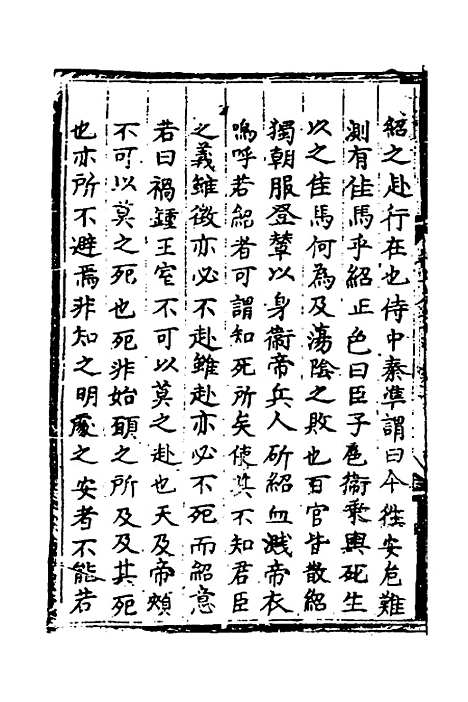 紹之赴行在也侍中秦準謂曰今徃安危難
測有佳馬乎紹正色曰臣子扈衞乗輿死生
以之佳馬何為及蕩陰之敗也百官皆散紹
獨朝服登輦以身衞帝兵人斫紹血濺帝衣
嗚呼若紹者可謂知死所矣使其不知君臣
之義雖徴亦必不赴雖赴亦必不死而紹意
若曰禍鍾王室不可以莫之赴也天及帝頰
不可以莫之死也死非始頤之所及及其死
也亦所不避焉非知之明處之安者不能若